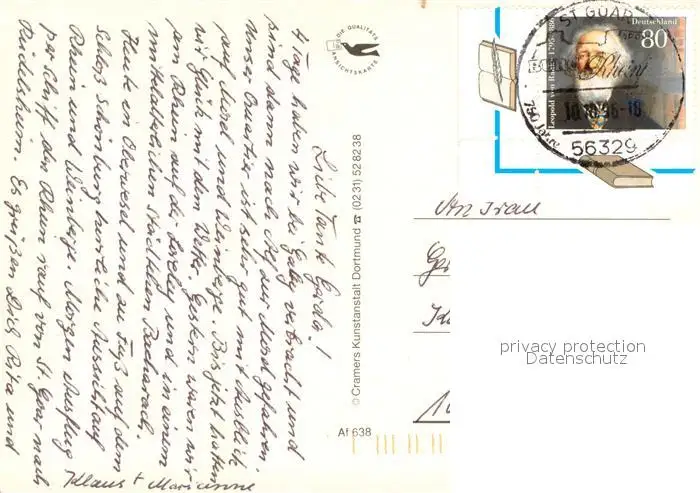 Liebe Tante Gerda!
4 Tage haben wir bei Gaby verbracht und
sind dann nach Alf der Mosel gefahren.
Unser Quartier ist sehr gut mit Ausblick
auf Mosel und Weinberge. Bis jetzt hatten
wir Glück mit dem Wetter. Gestern waren wir
am Rhein auf der Loreley und in einem
mittelalterlichen Städtchen Bacharach.
Heute Oberwesel und zu Fuß auf dem
Schloß Schönburg herrliche Aussicht auf
Rhein und Weinberge. Morgen Ausflug
per Schiff den Rhein rauf von St. Goar nach
Rüdesheim. Es grüßen Dich Rita und
Klaus + Marianne
DIE QUALITÄTS
ANSICHTSKARTE
© Cramers Kunstanstalt Dortmund ☎ (0231) 528238
Af 638
Deutschland
80
Leopold von Ranke 1795-1886
ST GOAR
Rhein
750 Jahre
56329
An Frau
privacy protection
Datenschutz